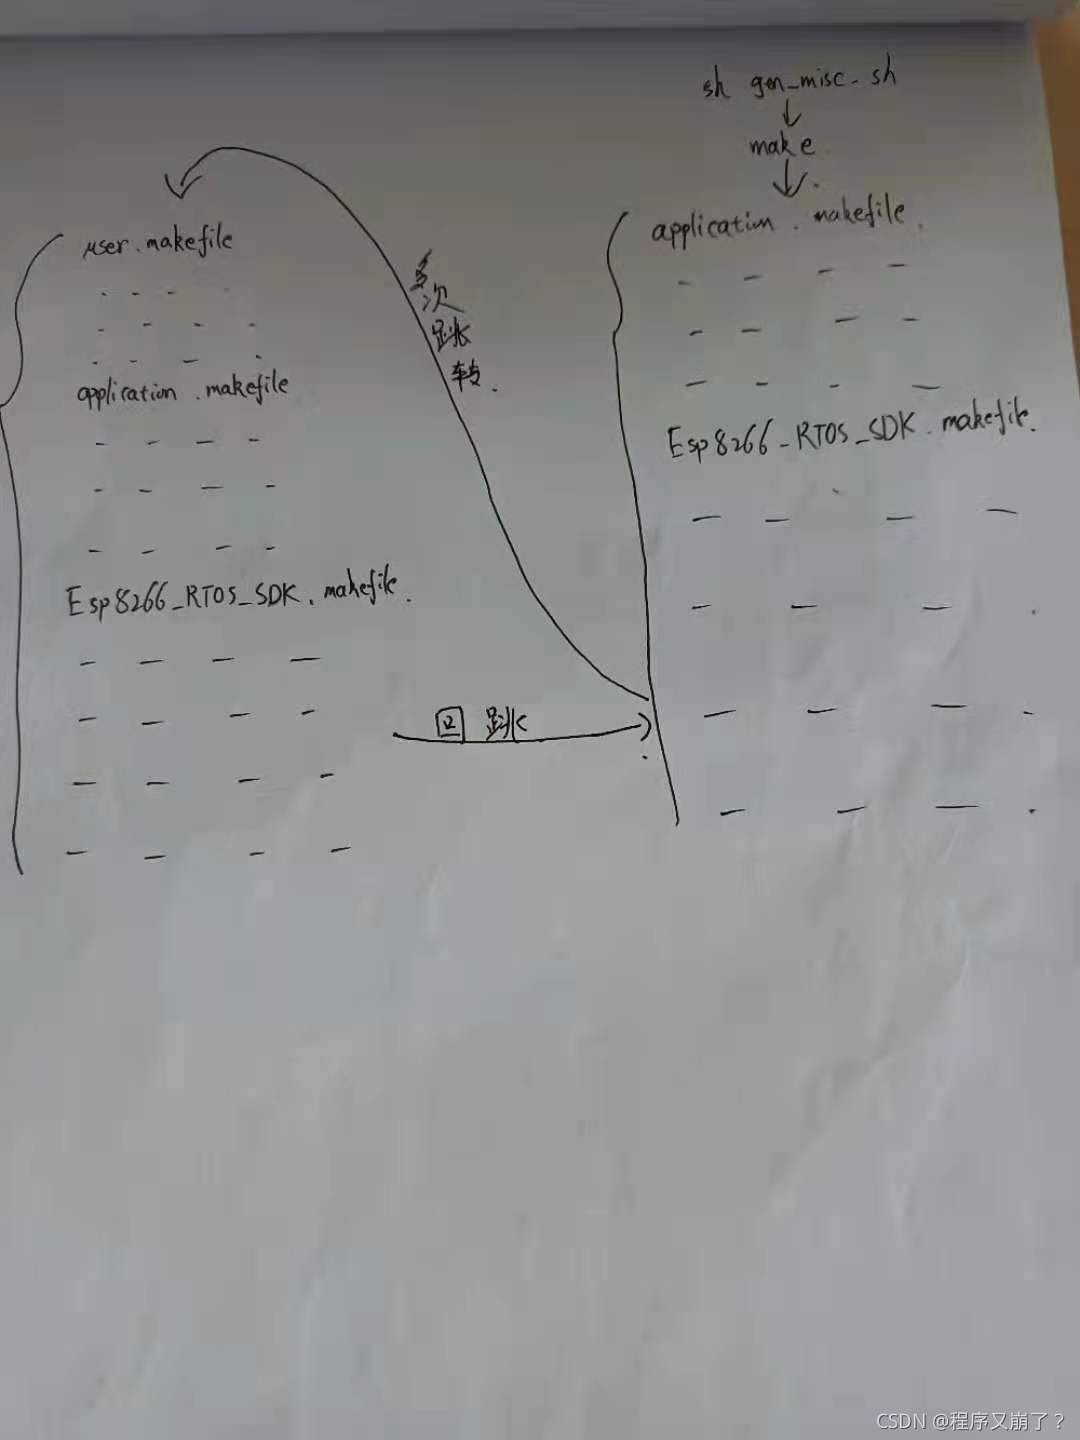 sh gen_misc.sh
make
application.makefile.
Esp8266_RTOS_SDK.makefile.
多次跳转.
user.makefile
application.makefile
Esp8266_RTOS_SDK.makefile.
回跳
CSDN @程序又崩了？